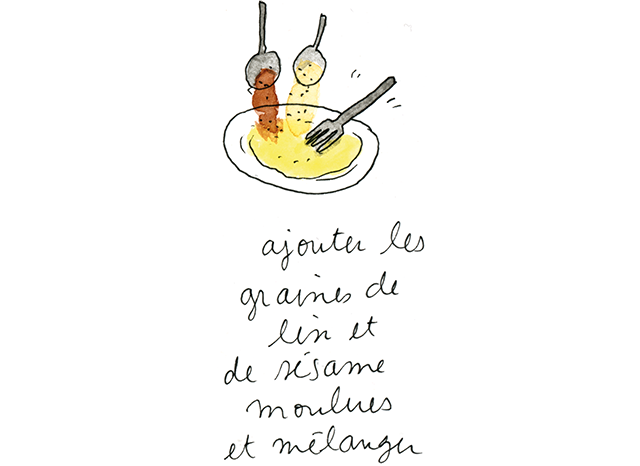 ajouter les
graines de
lin et
de sésame
moulues
et mélanger